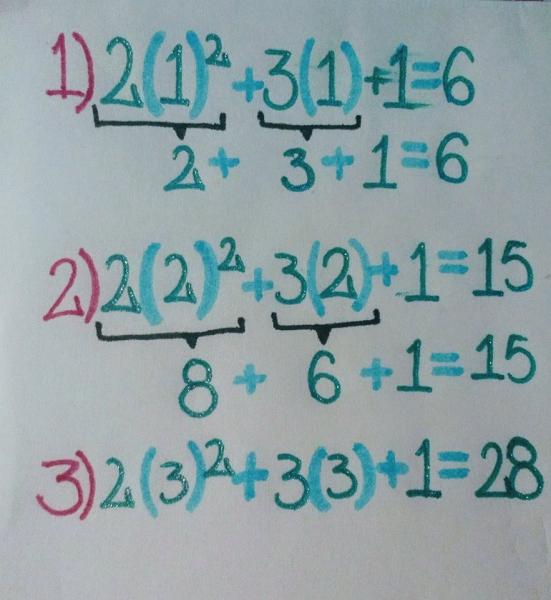 1) 2(1)² + 3(1) + 1 = 6
2 + 3 + 1 = 6
2) 2(2)² + 3(2) + 1 = 15
8 + 6 + 1 = 15
3) 2(3)² + 3(3) + 1 = 28